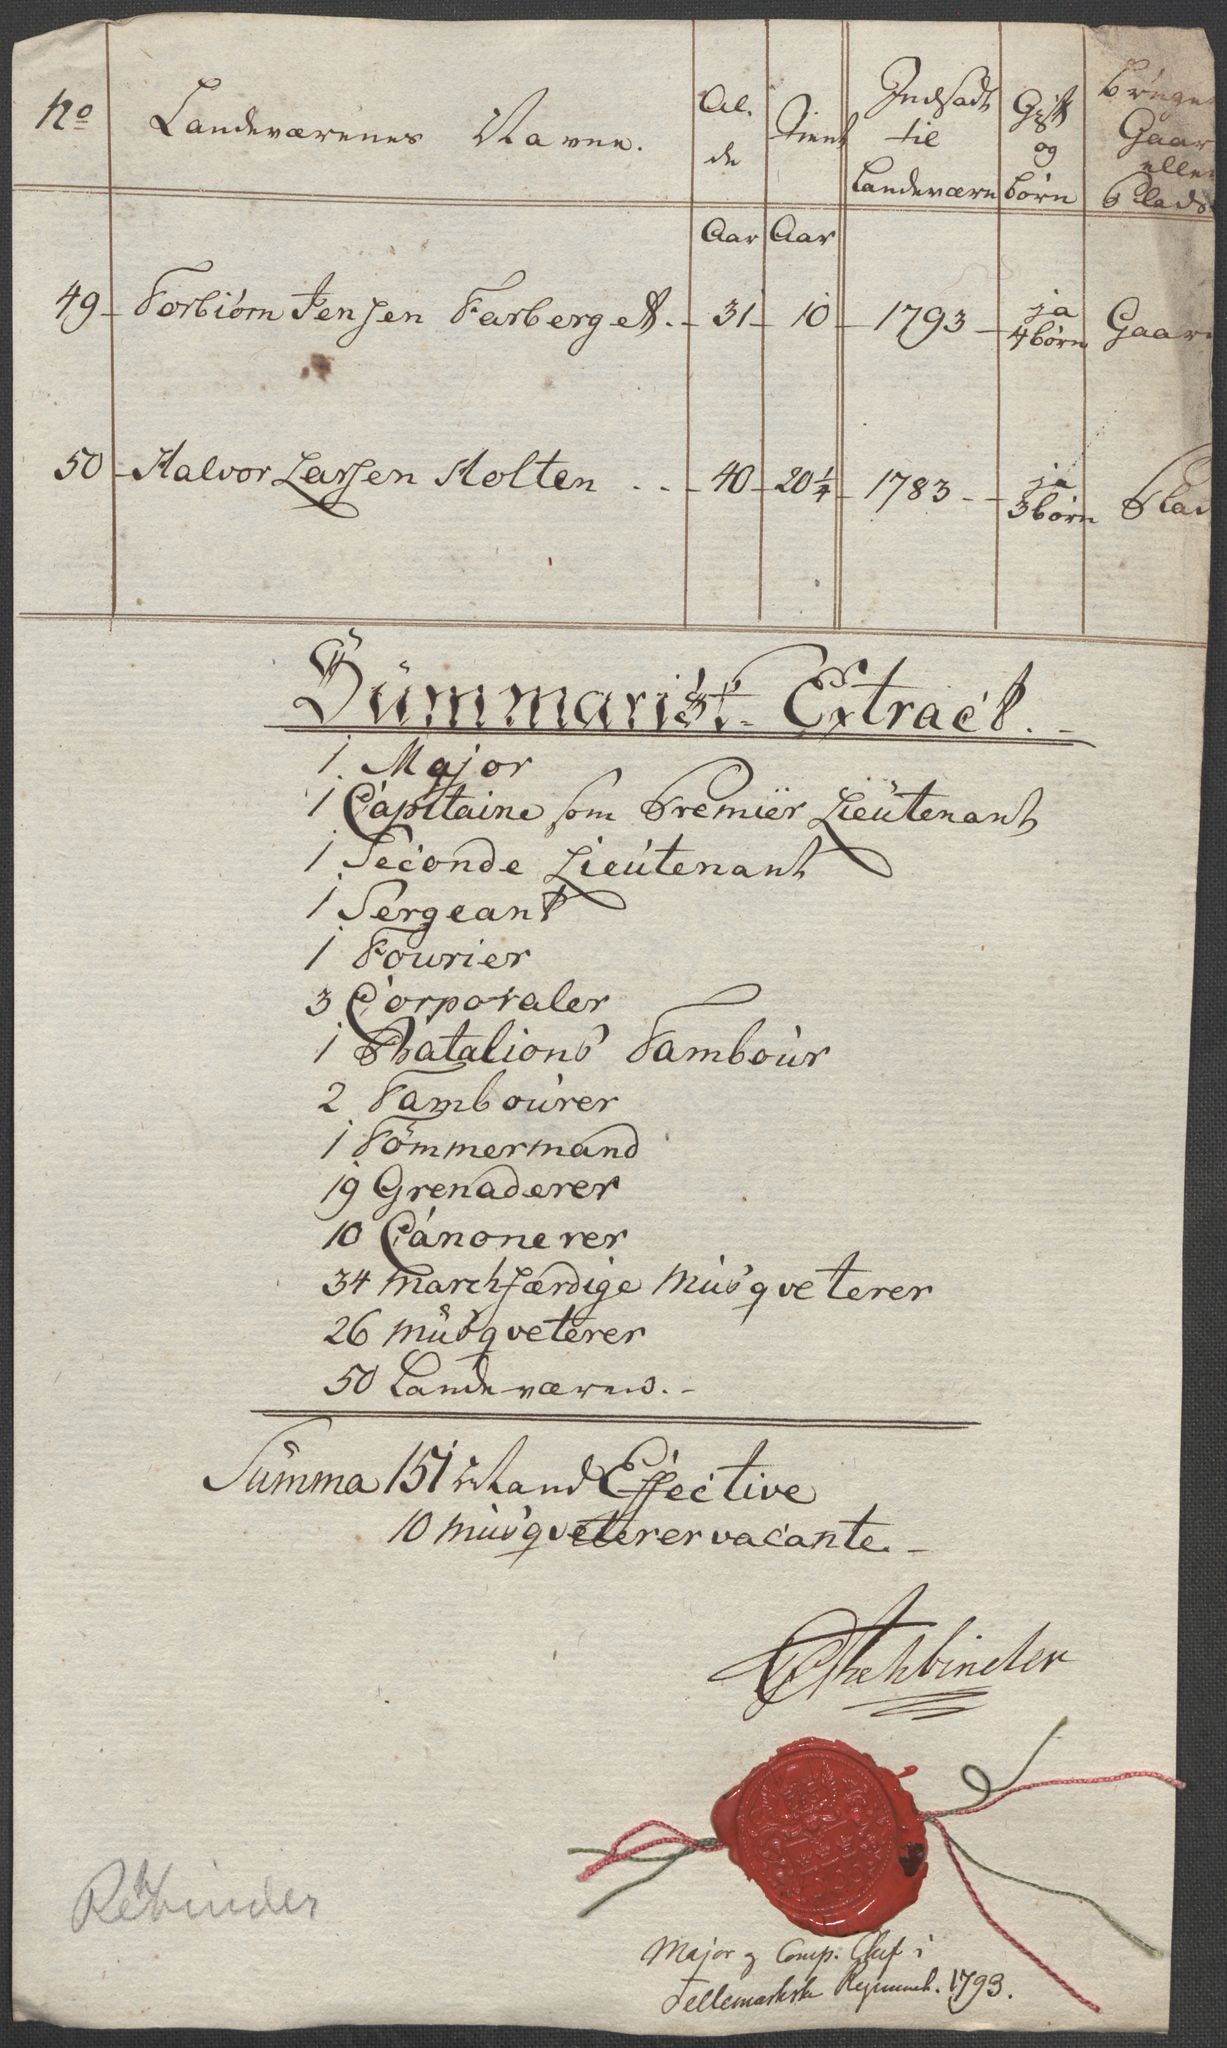 No Landeværenes Navne. Al. de Tient Indsadt til Landeværn Gift og børn Bruger Gaar eller Plads
Aar Aar
49 Torbiörn Jensen Farberget. 31 10 1793 ja 4 børn Gaar
50 Halvor Larsen Holten 40 20 1/4 1783 ja 3 børn Plad
Summarisk Extract.
1 Major
1 Capitaine som Premier Lieutenant
1 Seconde Lieutenant
1 Sergeant
1 Fourier
3 Corporaler
1 Batalions Tambour
2 Tambourer
1 Tömmermand
19 Grenaderer
10 Canonerer
34 marchfærdige Musqveterer
26 musqveterer
50 Landeværens.
Summa 151 Mand Effective
10 musqveterer vacante.
Rehbinder
Rehbinder
Major og Comp. Chef i
Tellemarkske Regiment. 1793.